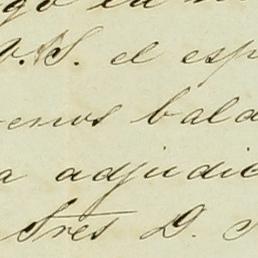 go en
V.S. el esp
enos bald
a adjudic
tres D.